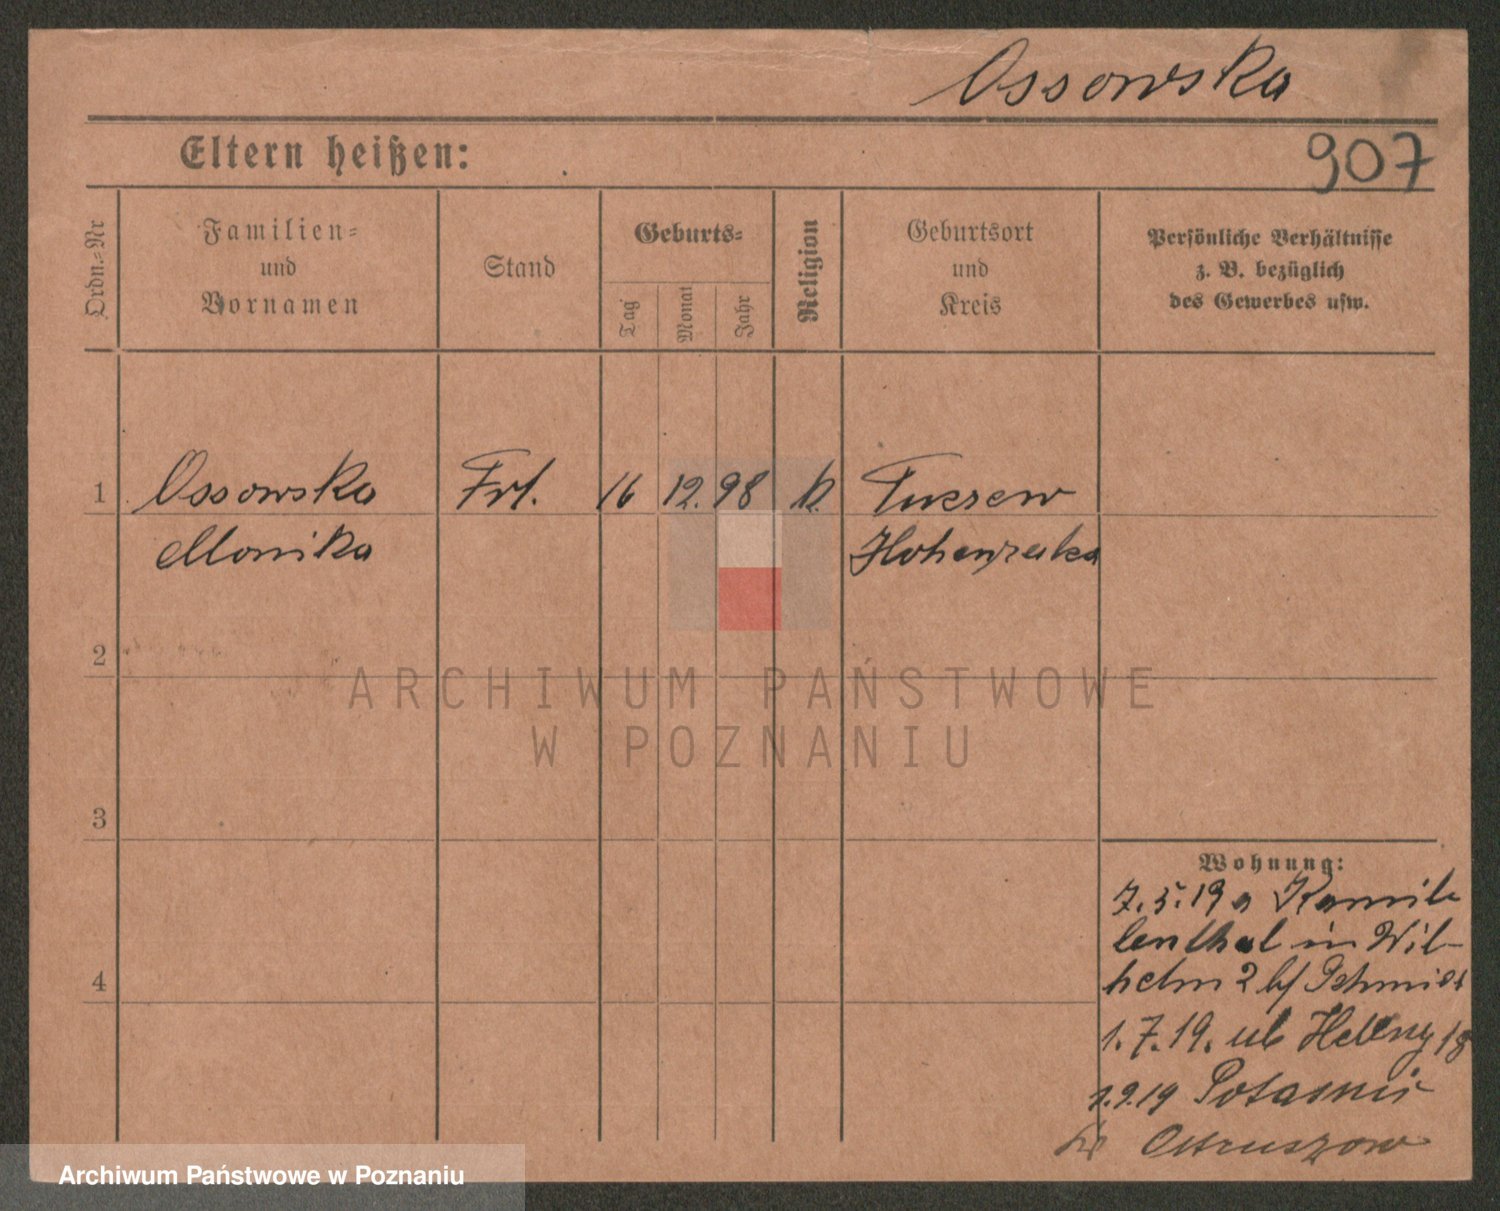 Ossowska
907
Eltern heißen:
Ordn.-Nr
Familien-
und
Vornamen
Stand
Geburts-
Tag
Monat
Jahr
Religion
Geburtsort
und
Kreis
Persönliche Verhältnisse
z. B. bezüglich
des Gewerbes usw.
1
Ossowska
Frl.
16
12.
98
k.
Monika
2
3
4
Wohnung:
7.5.19
lenthal in Wil-
helm 2 b/ Schmidt
1.7.19. ul. 18
1.9.19
ARCHIWUM PAŃSTWOWE
W POZNANIU
Archiwum Państwowe w Poznaniu